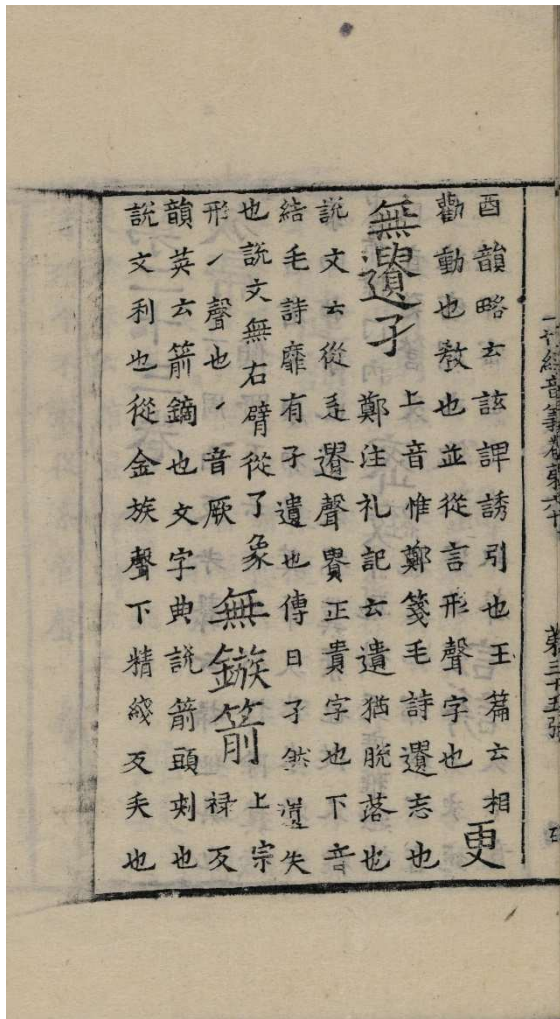 第三十五張
酉韻略云該諀誘引也王篇云相
勸動也教也並從言形聲字也 更
無遺孑 上音惟鄭箋毛詩遺志也
鄭注礼記云遺猶脫落也
說文云從辵䝿聲䝿正貴字也下音
結毛詩靡有孑遺也傳曰孑然遺失
也說文無右臂從了象
形㇒聲也㇒音厥 無鏃箭 上宗
禄反
韻英云箭鏑也文字典説箭頭刺也
說文利也從金族聲下精綫反矢也